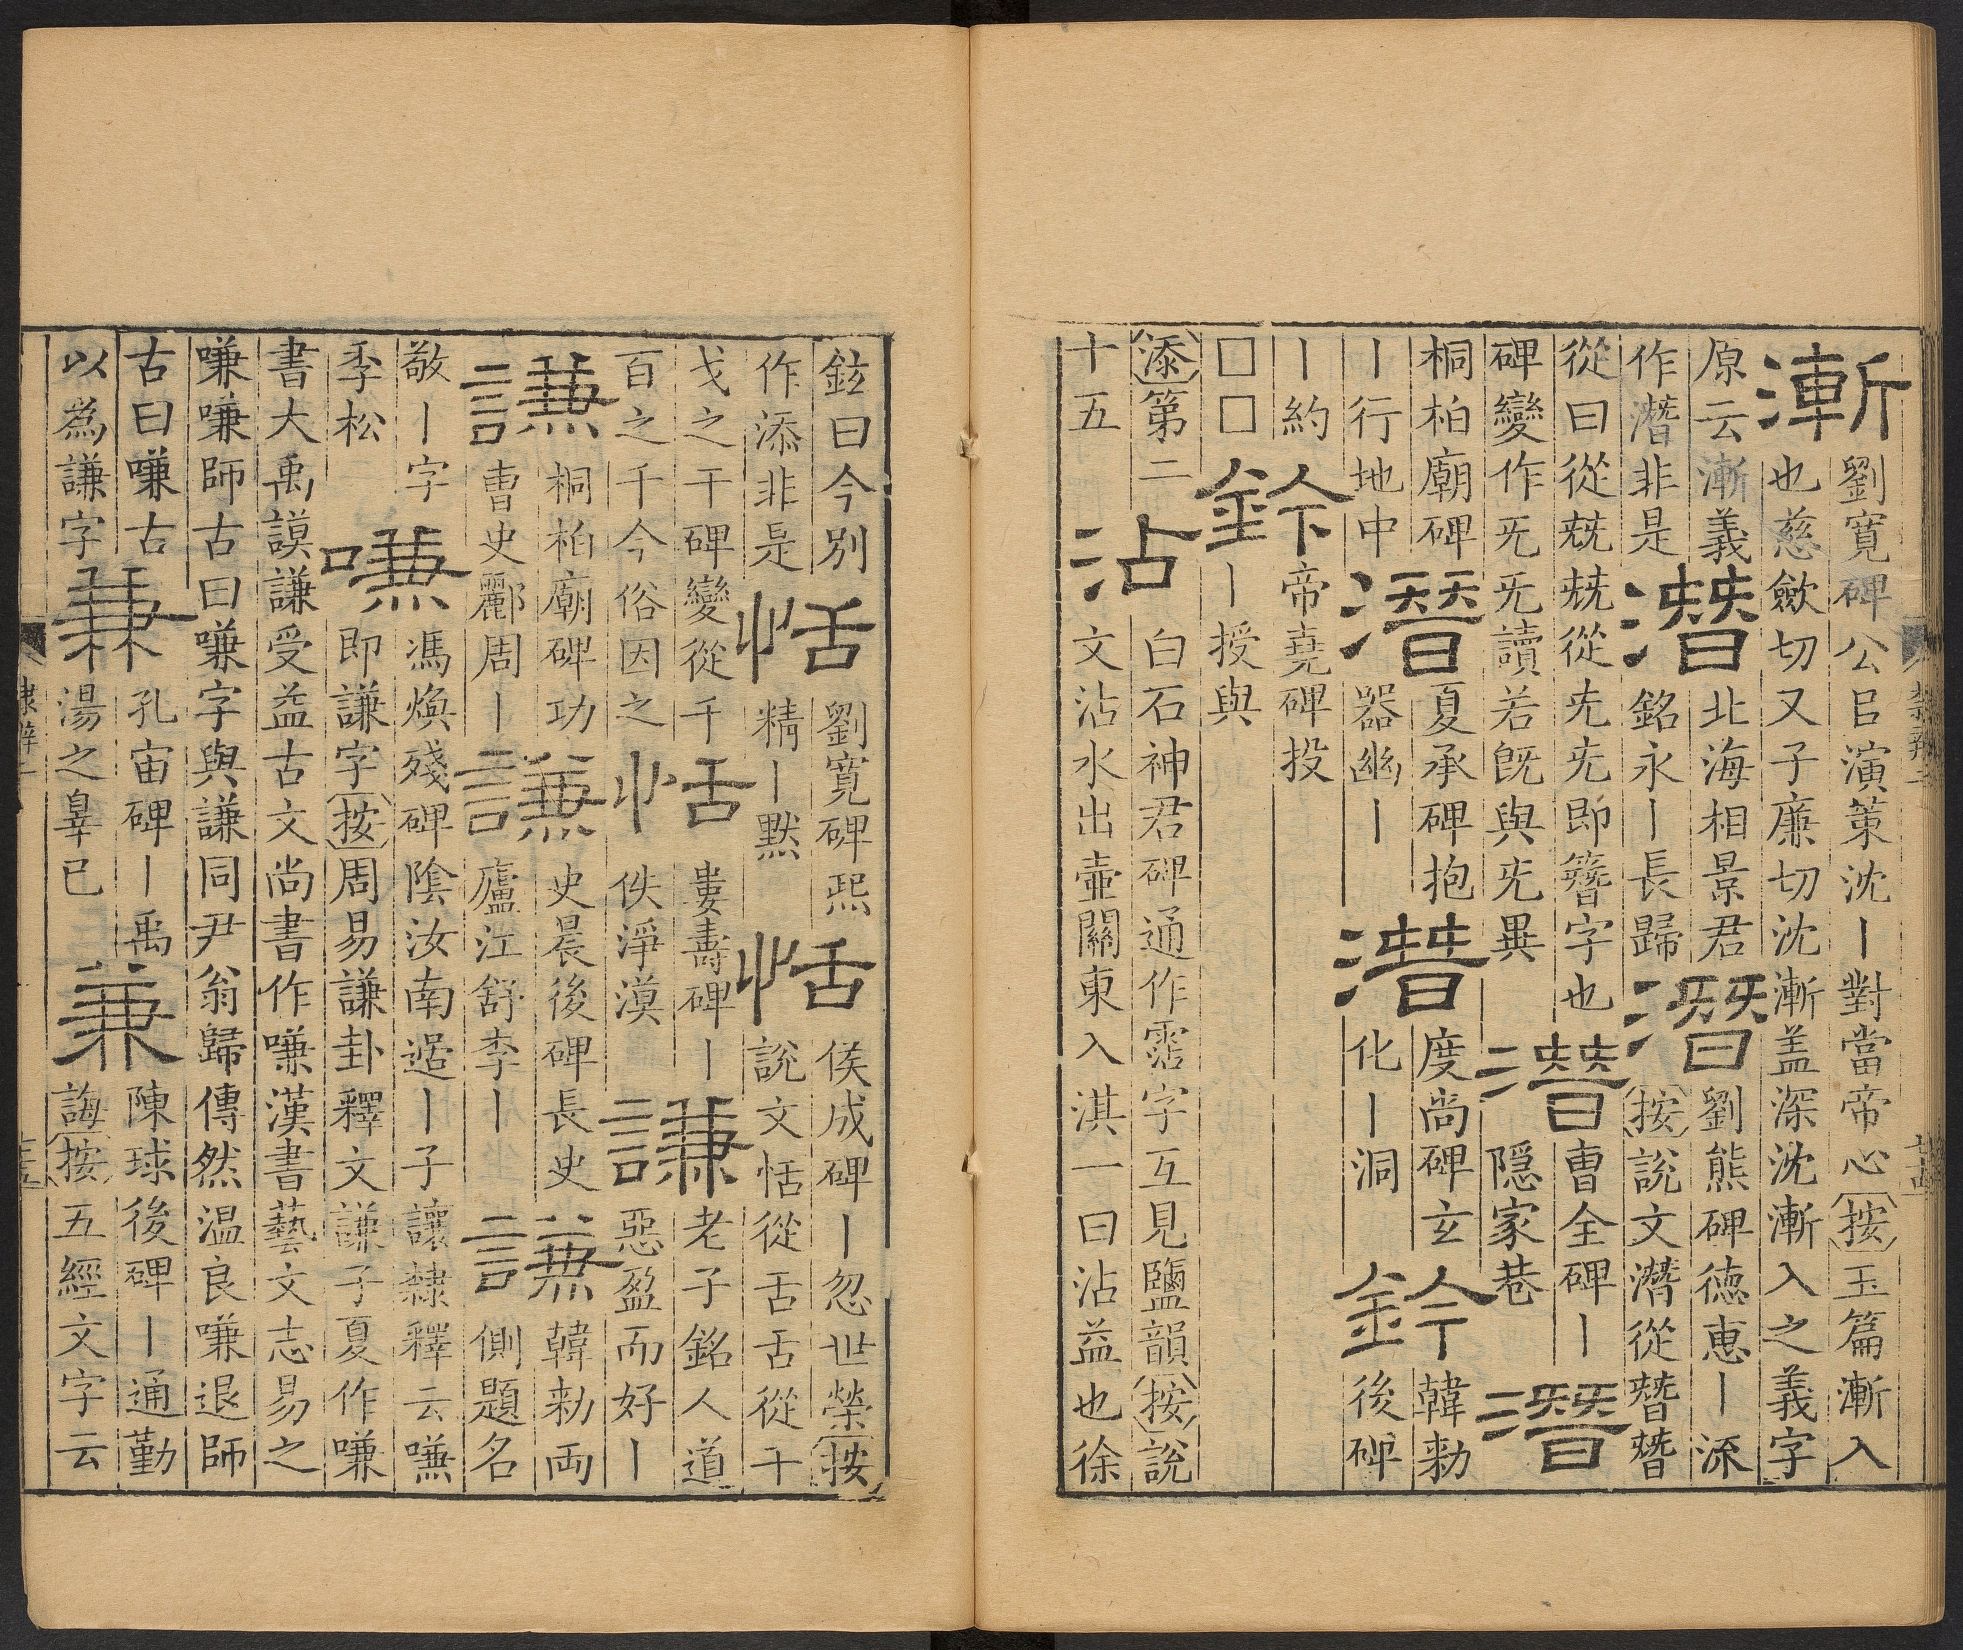 漸
劉寬碑公㠯演策沈丨對當帝心按玉篇漸入
也慈歛切又子廉切沈漸盖深沈漸入之義字
原云漸義
作潛非是
潛
北海相景君
銘永丨長歸
潛
劉熊碑德惠丨源
按說文潛從朁朁
從曰從兓兓從旡旡即簪字也
碑變作旡旡讀若旣與旡異
潛
曹全碑丨
隱家巷
潛
桐柏廟碑
丨行地中
潛
夏承碑抱
器幽丨
潛
度尚碑玄
化丨洞
鈐
韓勑
後碑
丨約
□□
鈐
帝堯碑投
丨授與
添第二
十五
沾
白石神君碑通作霑字互見鹽韻按說
文沾水出壺關東入淇一曰沾益也徐
鉉曰今別
作添非是
恬
劉寬碑熙
精丨默
恬
侯成碑丨忽世榮按
說文恬從舌舌從干
戈之干碑變從千
百之千今俗因之
恬
婁壽碑丨
佚淨漠
謙
老子銘人道
惡盈而好丨
謙
桐柏廟碑功
曹史酈周丨
謙
史晨後碑長史
廬江舒李丨
謙
韓勑两
側題名
敬丨字
季松
嗛
馮煥殘碑陰汝南丨子讓隸釋云嗛
即謙字按周易謙卦釋文謙子夏作嗛
書大禹謨謙受益古文尚書作嗛漢書藝文志易之
嗛嗛師古曰嗛字與謙同尹翁歸傳然温良嗛退師
古曰嗛古
以為謙字
兼
孔宙碑丨禹
湯之辠已
兼
陳球後碑丨通勤
誨按五經文字云